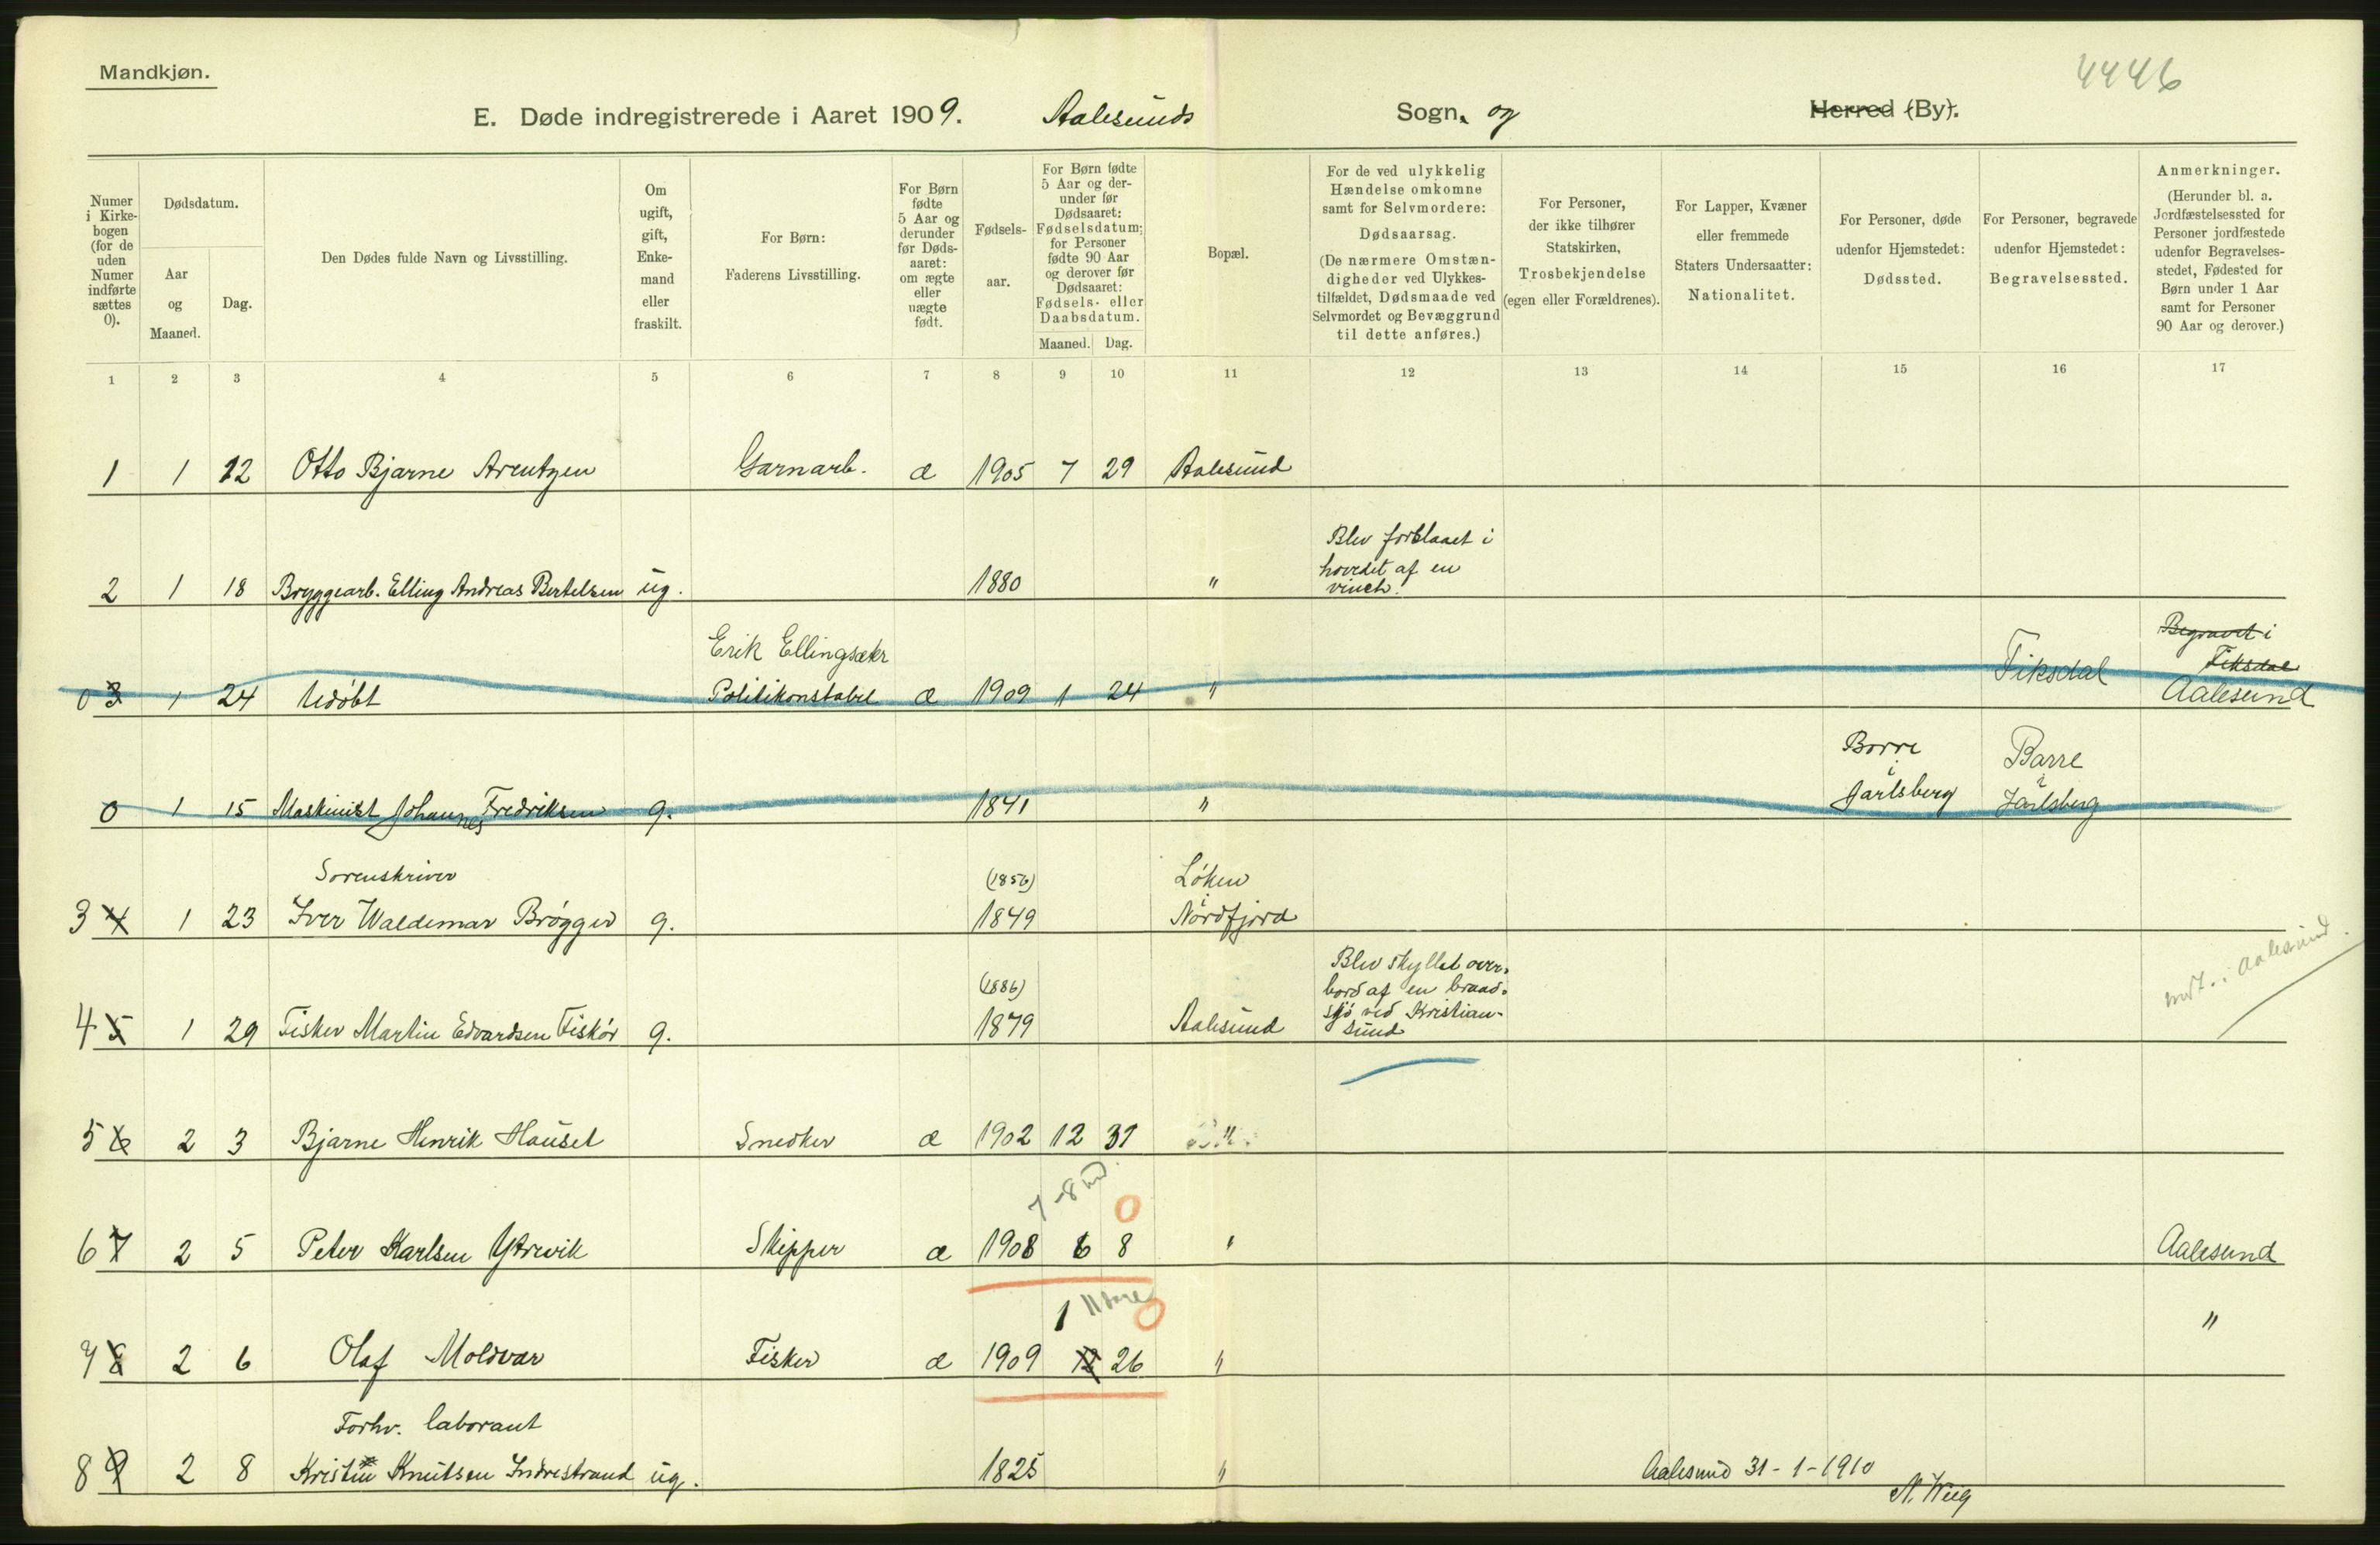 Mandkjøn.
4446
E. Døde indregistrerede i Aaret 1909. Aalesunds Sogn og Herred (By).
Numer i Kirkebogen (for de uden Numer indførte sættes 0).
Dødsdatum.
Aar og Maaned.
Dag.
Den Dødes fulde Navn og Livsstilling.
Om ugift, gift, Enkemand eller fraskilt.
For Børn: Faderens Livsstilling.
For Børn fødte 5 Aar og derunder før Dødsaaret: om ægte eller uægte født.
Fødselsaar.
For Børn fødte 5 Aar og derunder før Dødsaaret: Fødselsdatum; for Personer fødte 90 Aar og derover før Dødsaaret: Fødsels- eller Daabsdatum.
Maaned. Dag.
Bopæl.
For de ved ulykkelig Hændelse omkomne samt for Selvmordere: Dødsaarsag. (De nærmere Omstændigheder ved Ulykkestilfældet, Dødsmaade ved Selvmordet og Bevæggrund til dette anføres.)
For Personer, der ikke tilhører Statskirken, Trosbekjendelse (egen eller Forældrenes).
For Lapper, Kvæner eller fremmede Staters Undersaatter: Nationalitet.
For Personer, døde udenfor Hjemstedet: Dødssted.
For Personer, begravede udenfor Hjemstedet: Begravelsessted.
Anmerkninger. (Herunder bl. a. Jordfæstelsessted for Personer jordfæstede udenfor Begravelsesstedet, Fødested for Børn under 1 Aar samt for Personer 90 Aar og derover.)
1 2 3 4 5 6 7 8 9 10 11 12 13 14 15 16 17
1 1 12 Otto Bjarne Arentzen Garnarb. æ 1905 7 29 Aalesund
Blev forslaaet i
hovedet af en
2 1 18 Bryggearb. Elling Andreas Bertelsen ug. 1880 " vinch.
Erik Ellingsæter Begravet i
Fiksdal
0 3 1 24 Udøbt Politikonstabel æ 1909 1 24 " Fiksdal Aalesund
Borre Borre
i i
0 1 15 Maskinist Johannes Fredriksen g. 1841 " Jarlsberg Jarlsberg
Sorenskriver (1856) Løken
i
3 4 1 23 Iver Waldemar Brøgger g. 1849 Nordfjord
Blev skyllet over-
(1886) bord af en braad-
sjø ved Kristian-
4 5 1 29 Fisker Martin Edvardsen Fiskør g. 1879 Aalesund sund
i Aalesund.
5 6 2 3 Bjarne Henrik Hauset Snedker æ 1902 12 31 "
7-8 0
6 7 2 5 Peter Karlsen Ytrevik Skipper æ 1908 6 8 " Aalesund
1 11 0
7 8 2 6 Olaf Moldvær Fisker æ 1909 12 26 " "
Forhv. laborant
8 9 2 8 Kristin Knutsen Indrestrand ug. 1825 "
Aalesund 31-1-1910
N. Wiig